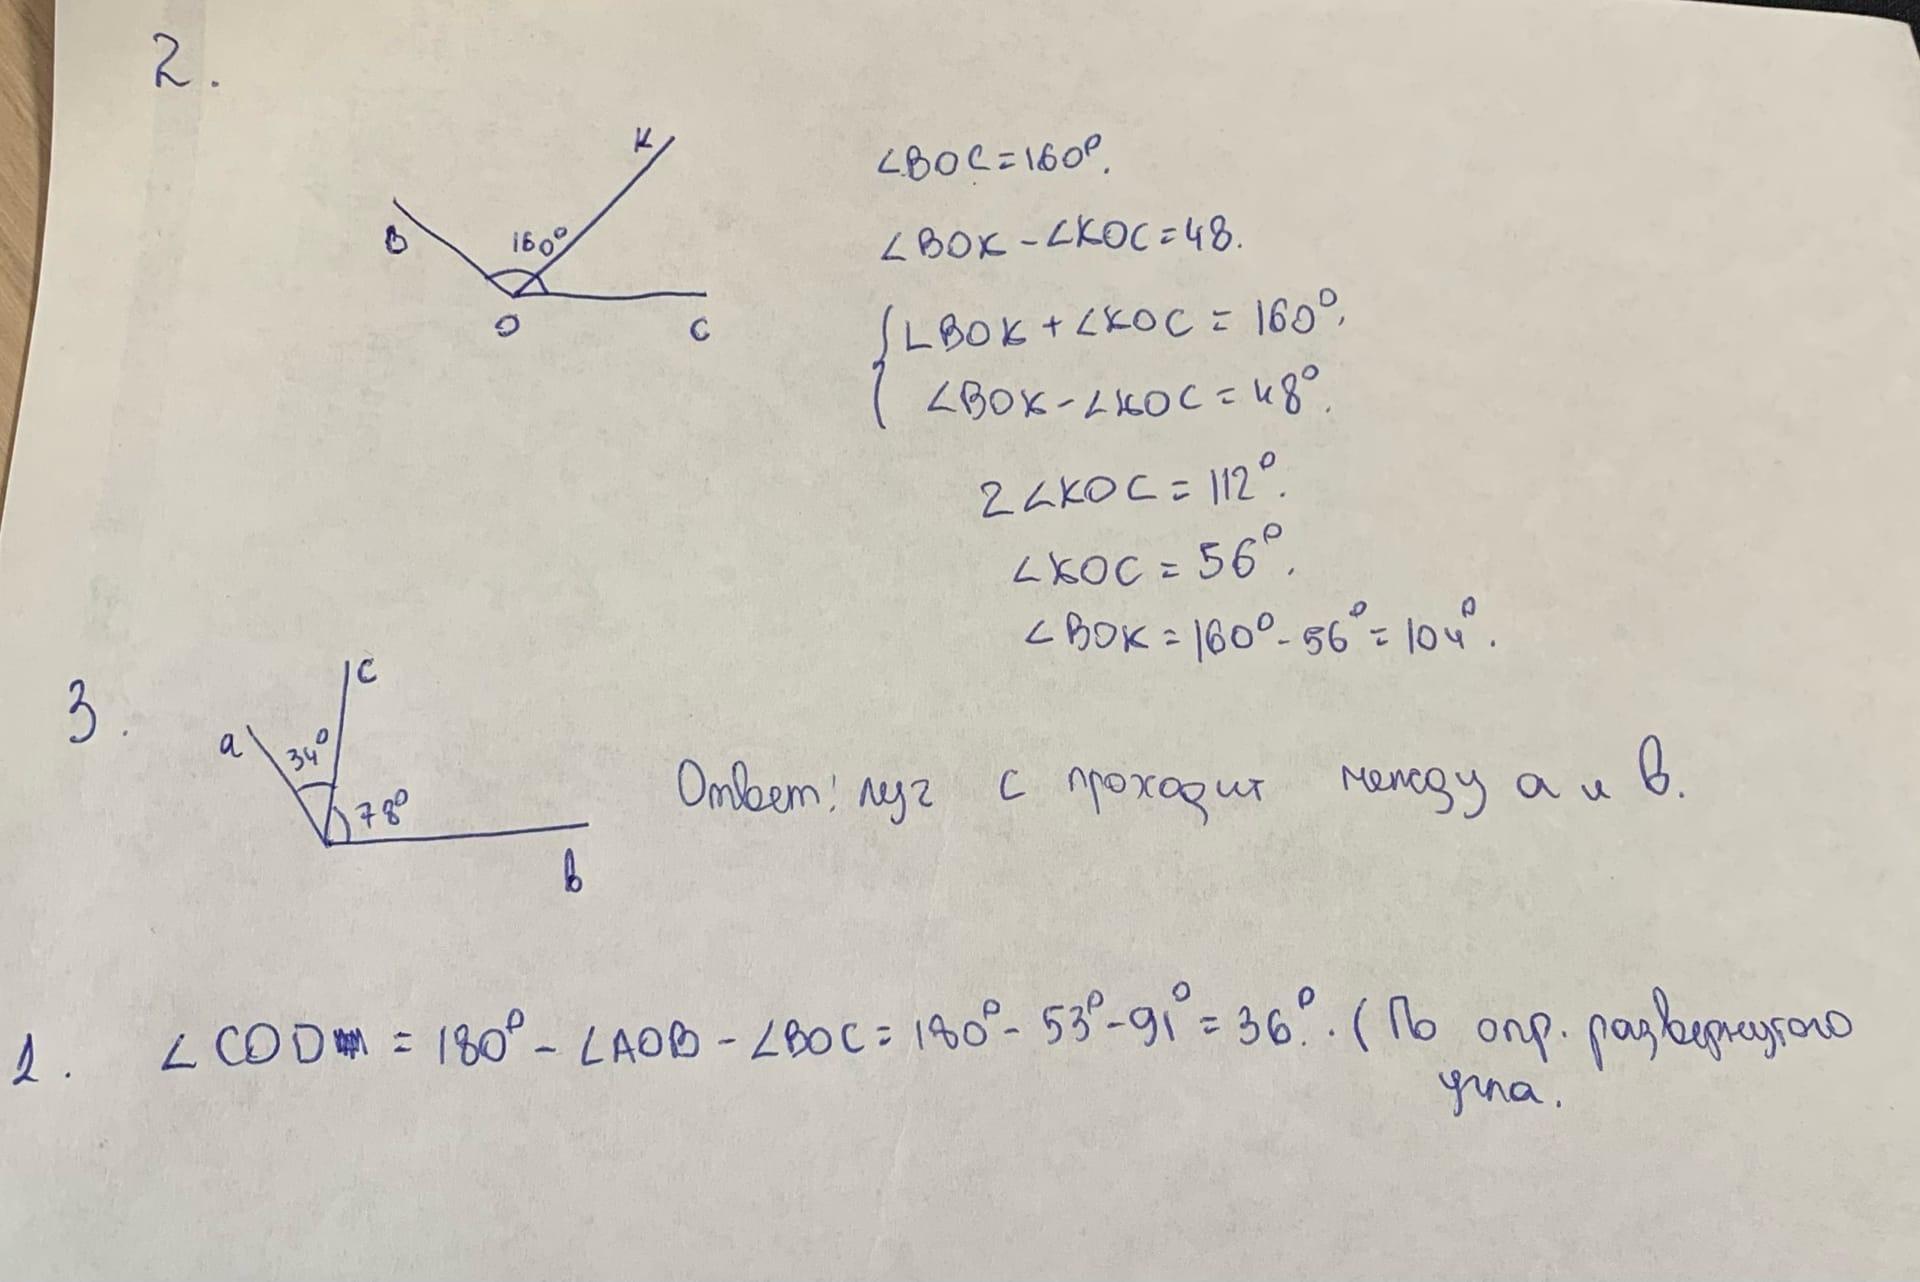 2.
K
B
160°
O
C
∠BOC=160°.
∠BOK-∠KOC=48.
∠BOK+∠KOC=160°.
∠BOK-∠KOC=48°.
2∠KOC=112°.
∠KOC=56°.
∠BOK=160°-56°=104°.
3.
c
a
34°
78°
b
Ответ: луч c проходит между a и b.
1. ∠COD=180°-∠AOB-∠BOC=180°-53°-91°=36°. (По опр. развернутого
угла.